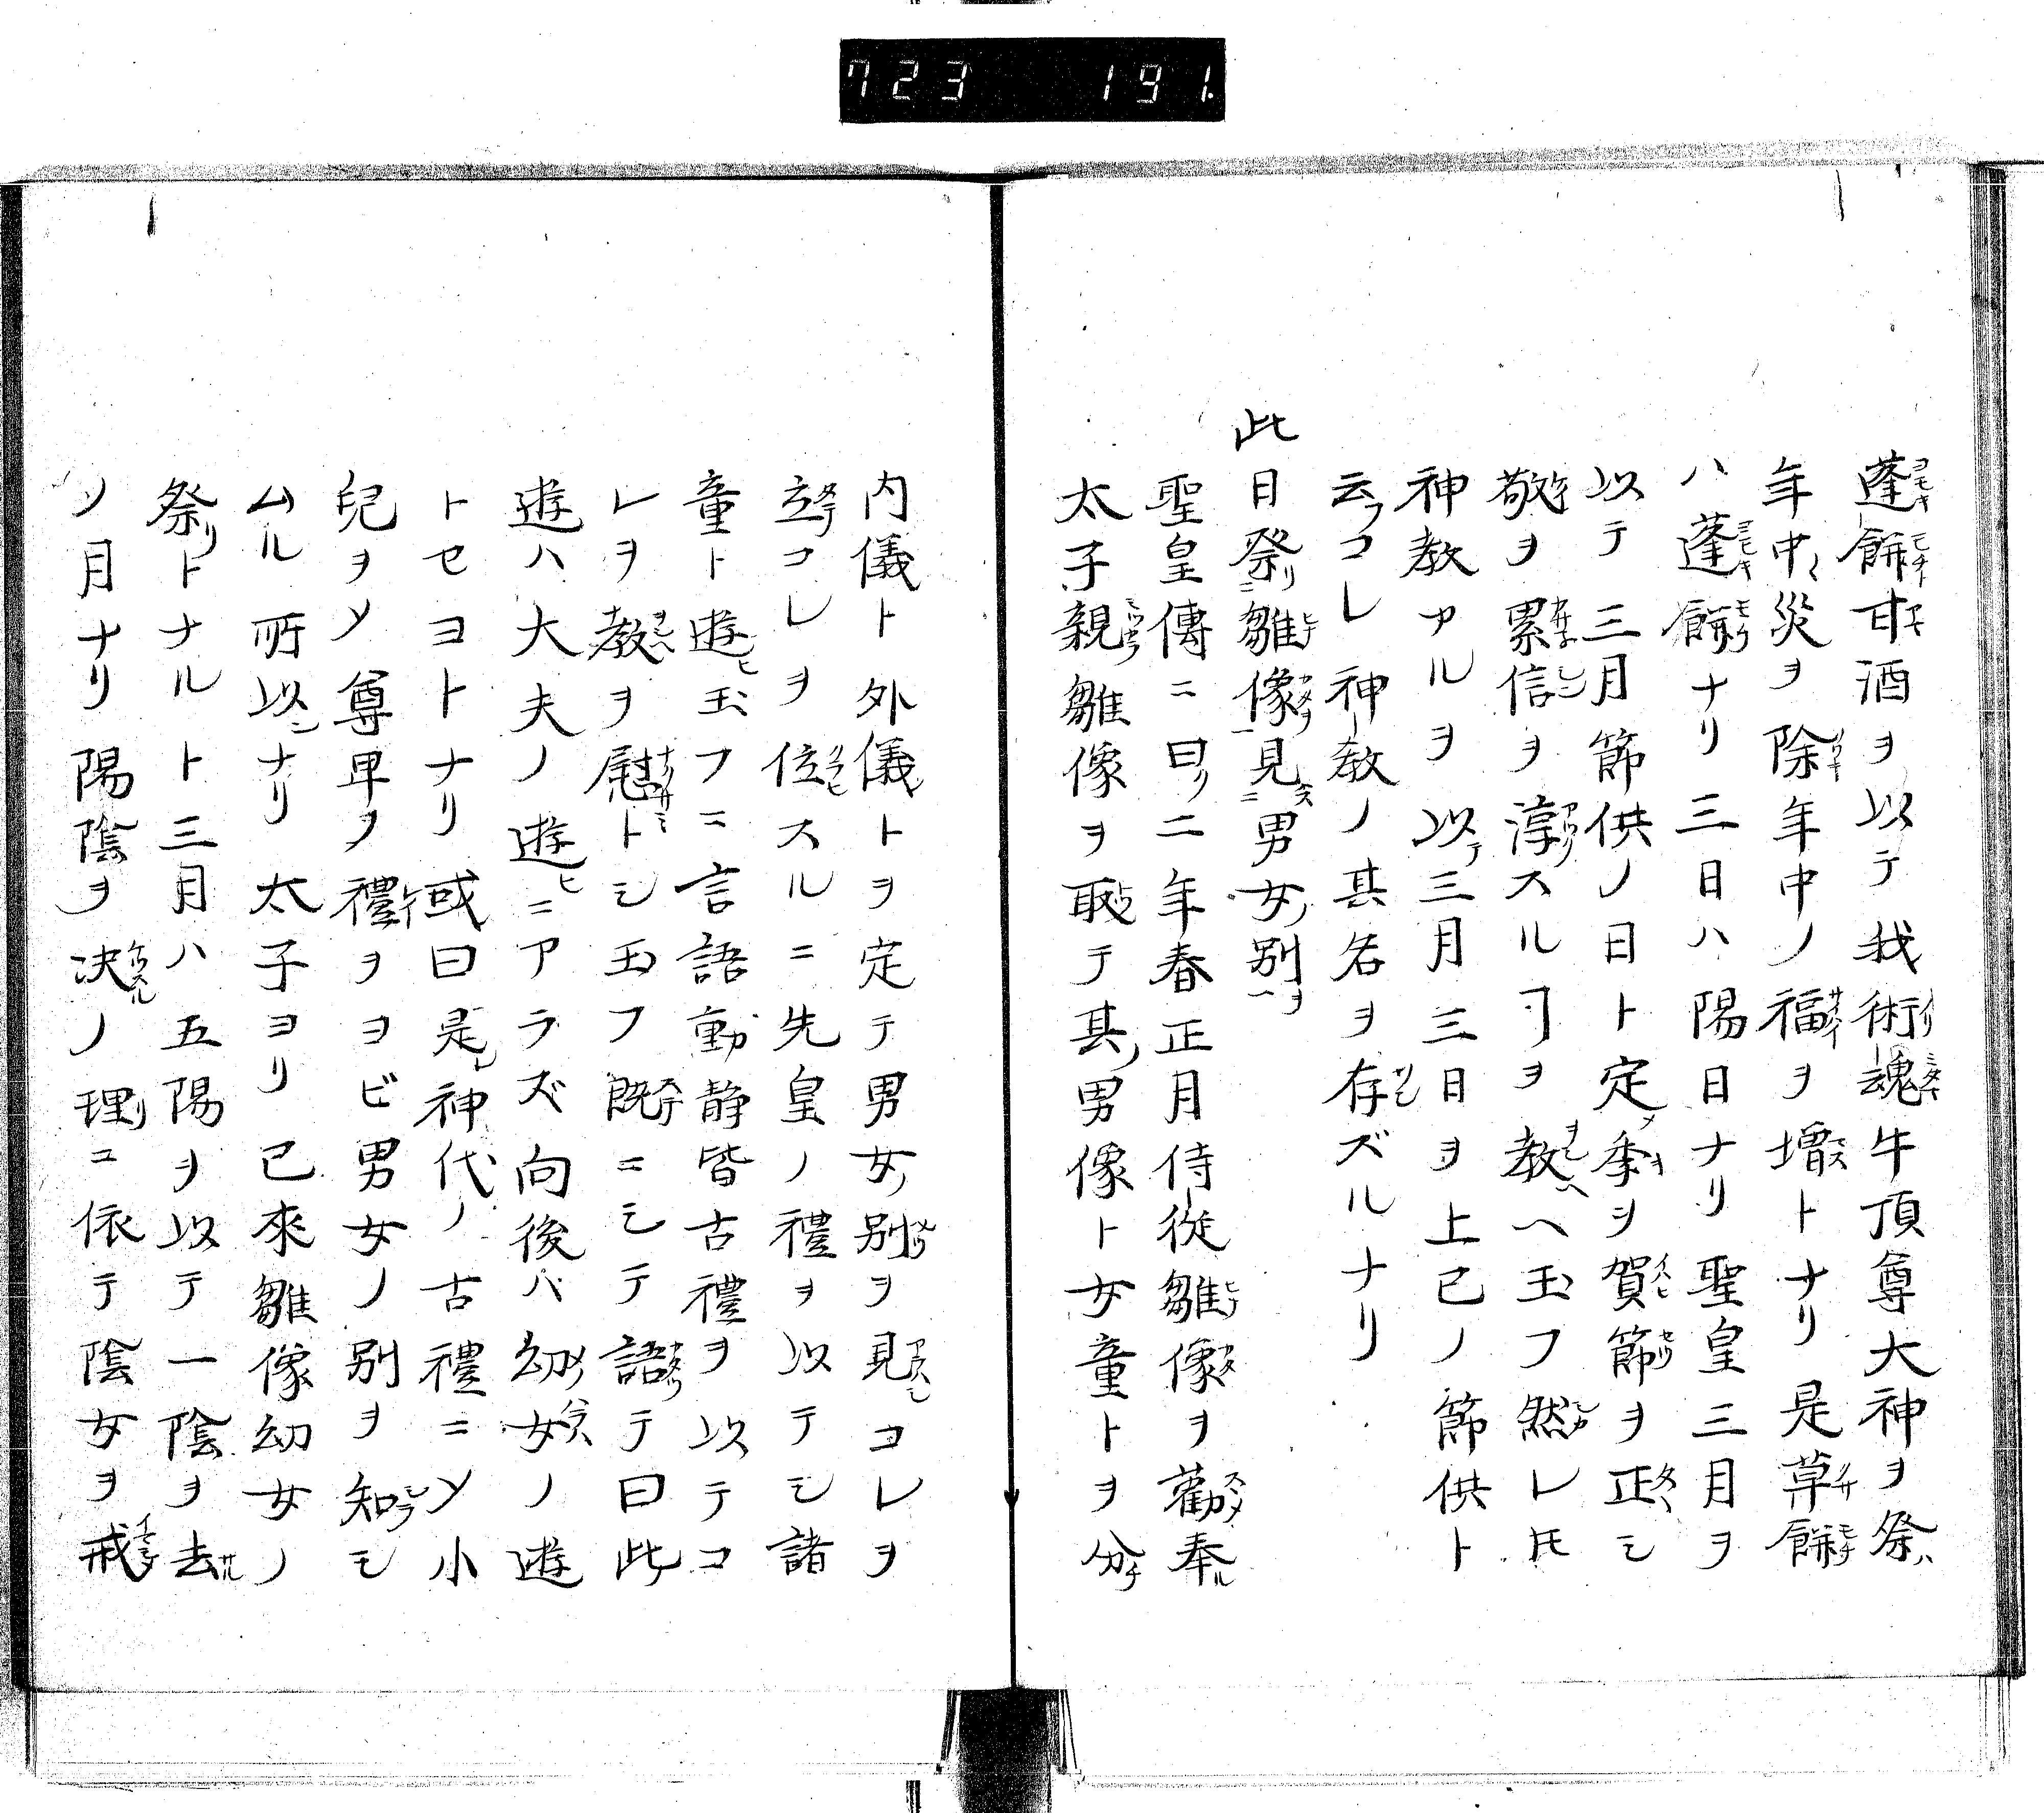 723 191.
蓬餅甘酒ヲ以テ我術魂牛頂尊大神ヲ祭ハ
年中ノ災ヲ除年中ノ福ヲ増トナリ是草餅
ハ蓬餅ナリ三日ハ陽日ナリ聖皇三月ヲ
以テ三月節供ノ日ト定メ季ヲ賀節ヲ正シ
敬ヲ累信ヲ淳スルヿヲ教ヘ玉フ然レ𪜈
神教アルヲ以テ三月三日ヲ上巳ノ節供ト
云フコレ神教ノ其名ヲ存ズルナリ
此日祭リ雛像見男女別ヲ
聖皇傳ニ曰ク二年春正月侍従雛像ヲ勸奉ル
太子親雛像ヲ取テ其男像ト女童トヲ分
内儀ト外儀トヲ定テ男女別ヲ見コレヲ
立コレヲ位スルニ先皇ノ禮ヲ以テシ諸
童ト遊ヒ玉フニ言語動静皆古禮ヲ以テコ
レヲ教ヲ慰トシ玉フ既ニシテ語テ曰此
遊ハ大夫ノ遊ヒニアラズ向後バ幼女ノ遊
トセヨトナリ或曰是レ神代ノ古禮ニ〆小
兒ヲ〆尊卑ノ禮ヲヨビ男女ノ別ヲ知シ
ムル所以ナリ太子ヨリ已來雛像幼女ノ
祭リトナルト三月ハ五陽ヲ以テ一陰ヲ去ル
ノ月ナリ陽陰ヲ決ノ理ニ依テ陰女ヲ戒